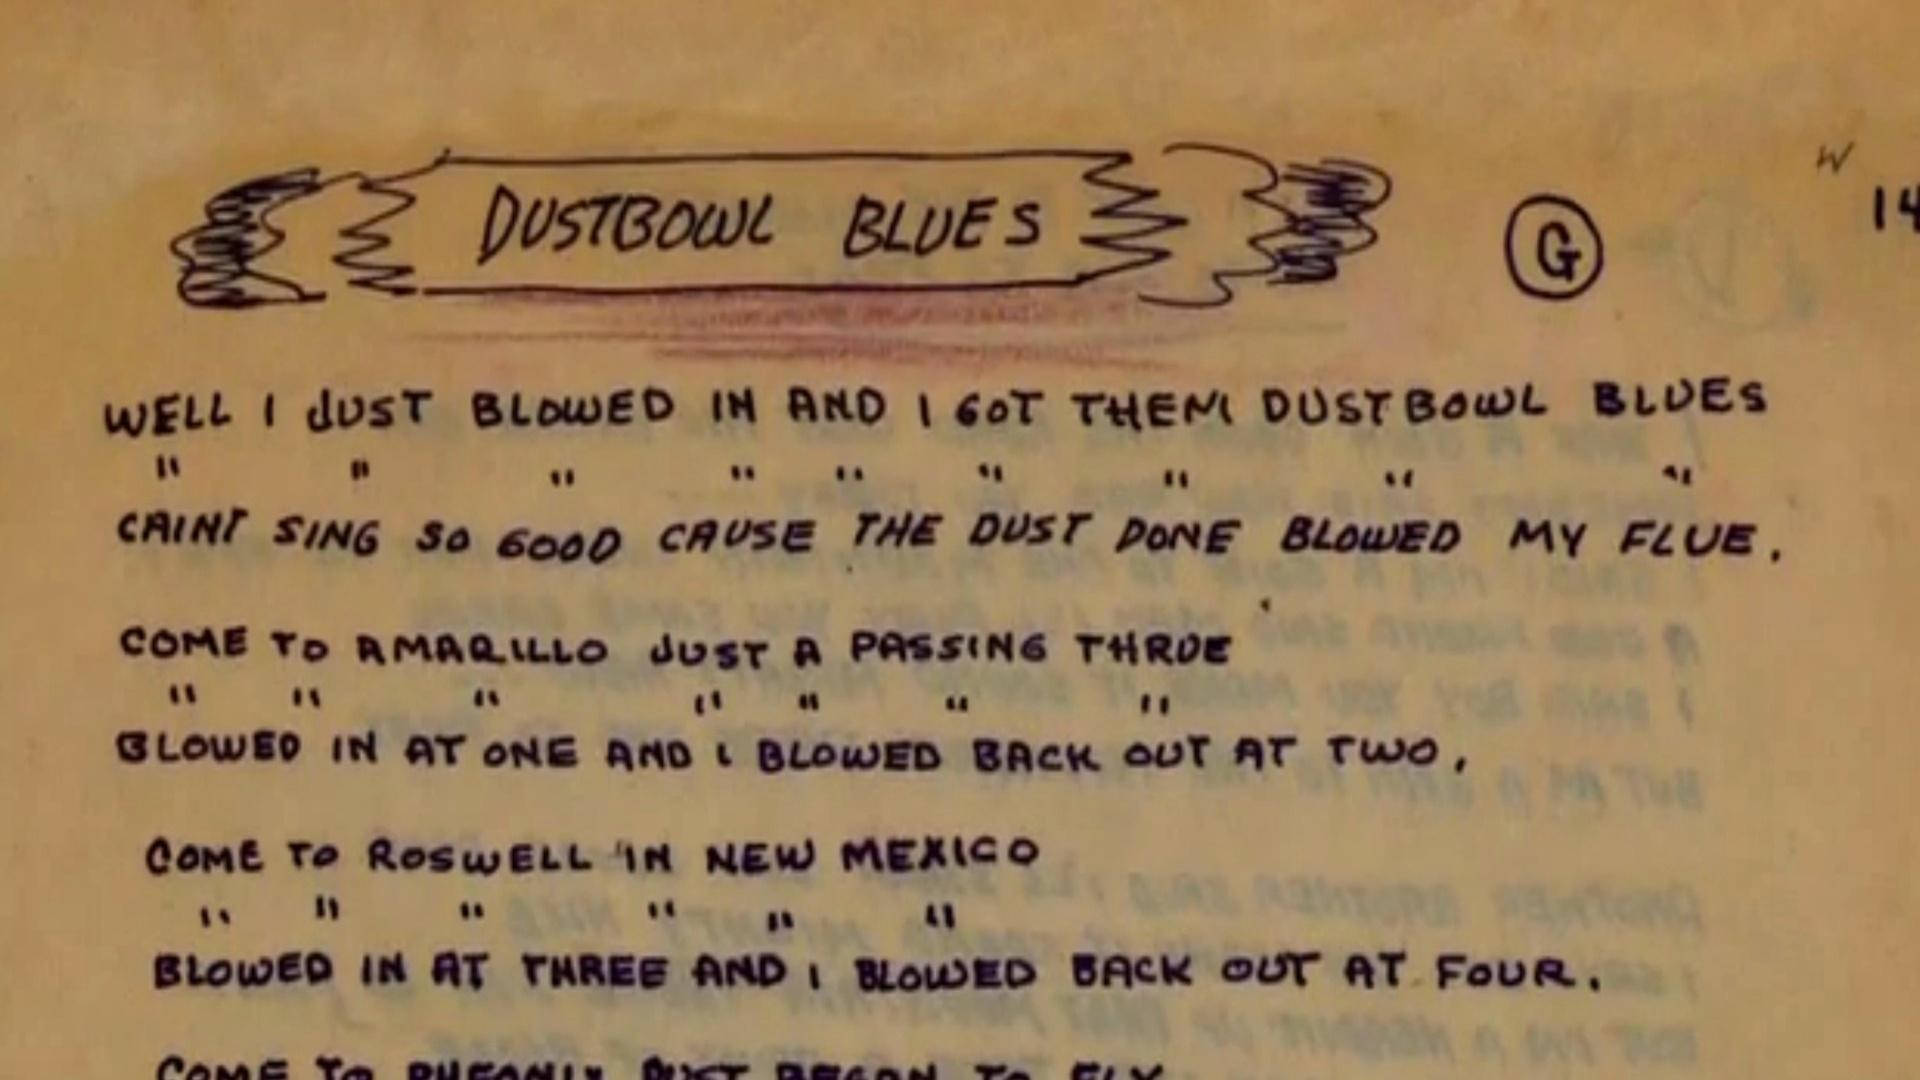 W
DUSTBOWL BLUES G 14
WELL I JUST BLOWED IN AND I GOT THEM DUSTBOWL BLUES
" " " " " " " " "
CAINT SING SO GOOD CAUSE THE DUST DONE BLOWED MY FLUE.
COME TO AMARILLO JUST A PASSING THRUE
" " " " " " "
BLOWED IN AT ONE AND I BLOWED BACK OUT AT TWO.
COME TO ROSWELL IN NEW MEXICO
" " " " " "
BLOWED IN AT THREE AND I BLOWED BACK OUT AT FOUR.
COME TO PHEONIX DUST BEGAN TO FLY